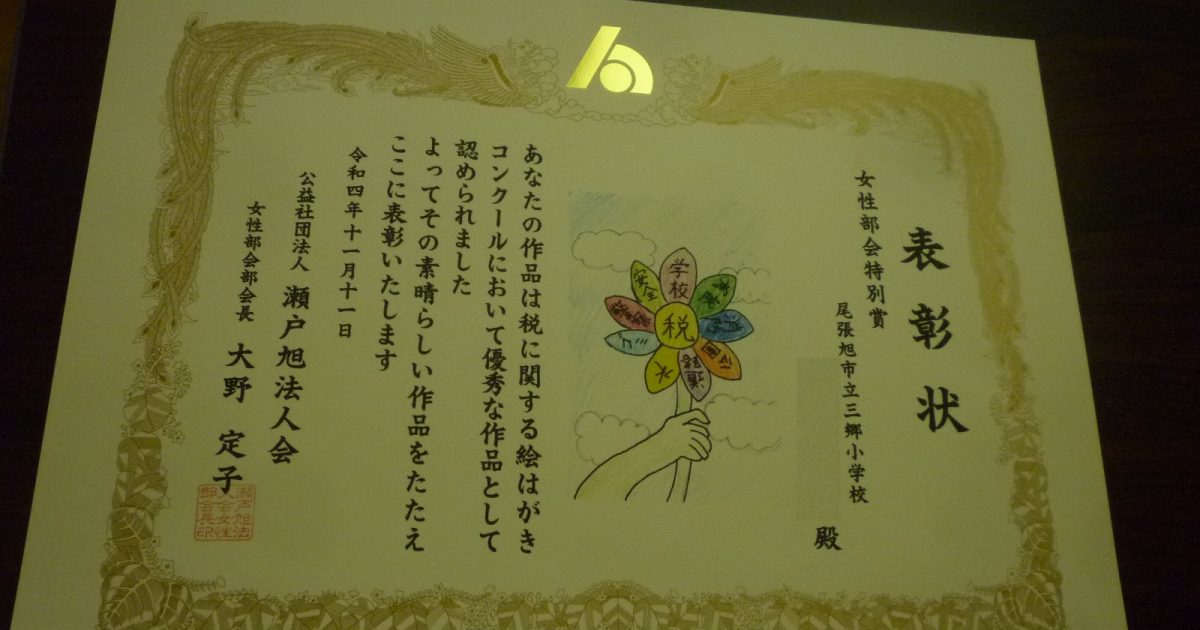 表彰状
女性部会特別賞
尾張旭市立三郷小学校
殿
学校
安全
消防
公園
道路
水
ゴミ
税
あなたの作品は税に関する絵はがき
コンクールにおいて優秀な作品として
認められました
よってその素晴らしい作品をたたえ
ここに表彰いたします
令和四年十一月十一日
公益社団法人 瀬戸旭法人会
女性部会部会長 大野 定子
瀬戸旭法
人会女性
部会長印